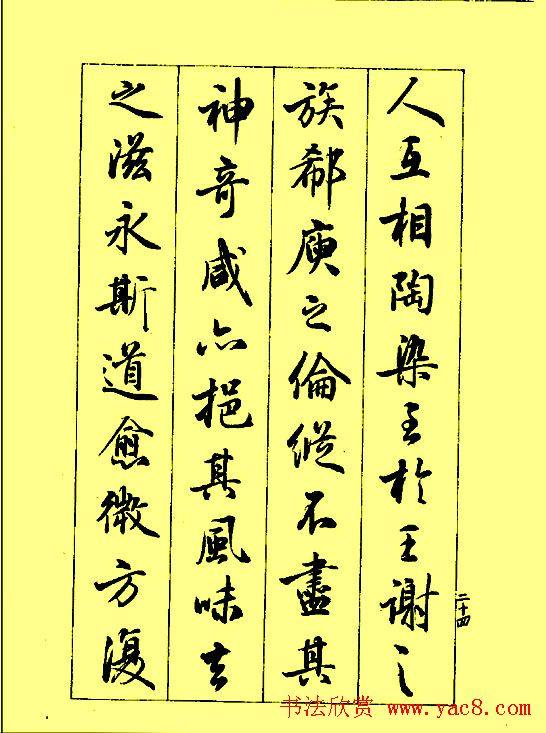 人互相陶染至於王謝之
族郗庾之倫縱不盡其
神奇咸亦挹其風味去
之滋永斯道愈微方復
二十四
书法欣赏 www.yac8.com